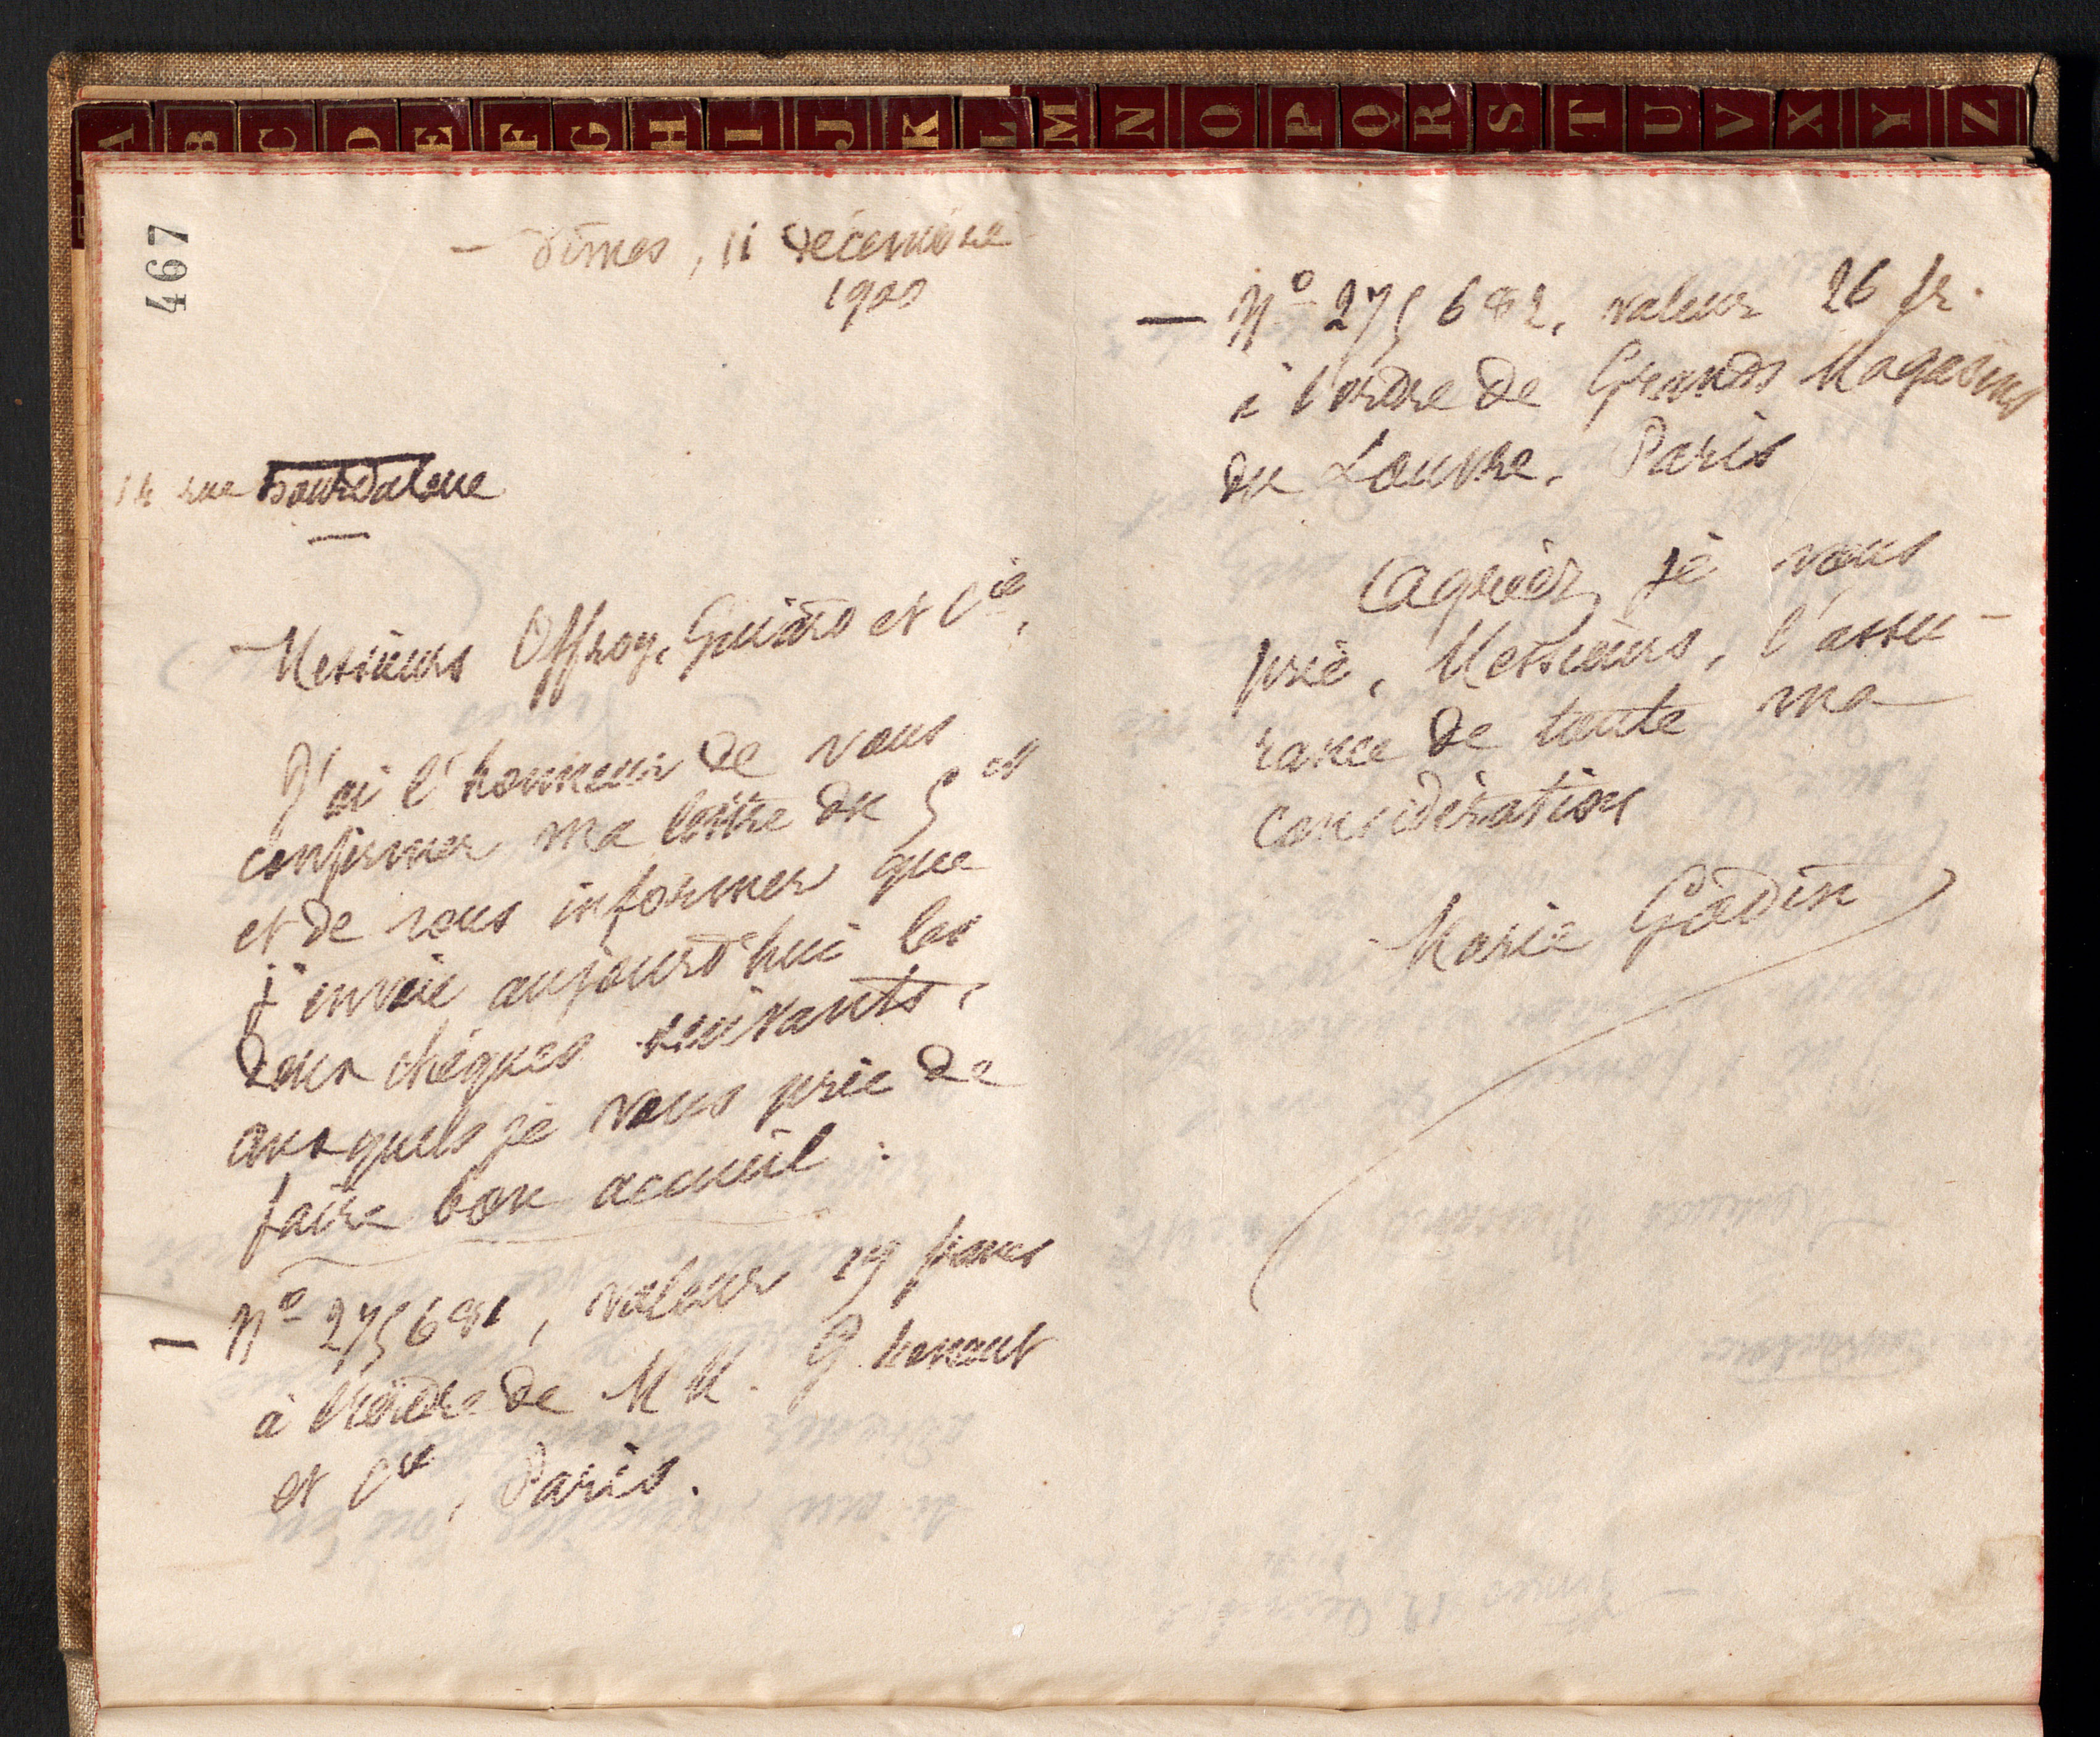 A B C D E F G H I J K L M N O P Q R S T U V X Y Z
467
Nîmes, 11 décembre
1900
14 rue Bourdaloue
Messieurs Offroy, Guiard et Cie,
J'ai l'honneur de vous
confirmer ma lettre du 5 ct
et de vous informer que
j'envoie aujourd'hui les
deux chèques suivants,
auxquels je vous prie de
faire bon accueil :
— No 275681, valeur 19 francs
à l'ordre de MM. G.
et Cie, Paris.
— No 275682, valeur 26 fr.
à l'ordre de Grands Magasins
du Louvre, Paris
Agréez, je vous
prie, Messieurs, l'assu-
rance de toute ma
considération
Marie Godin